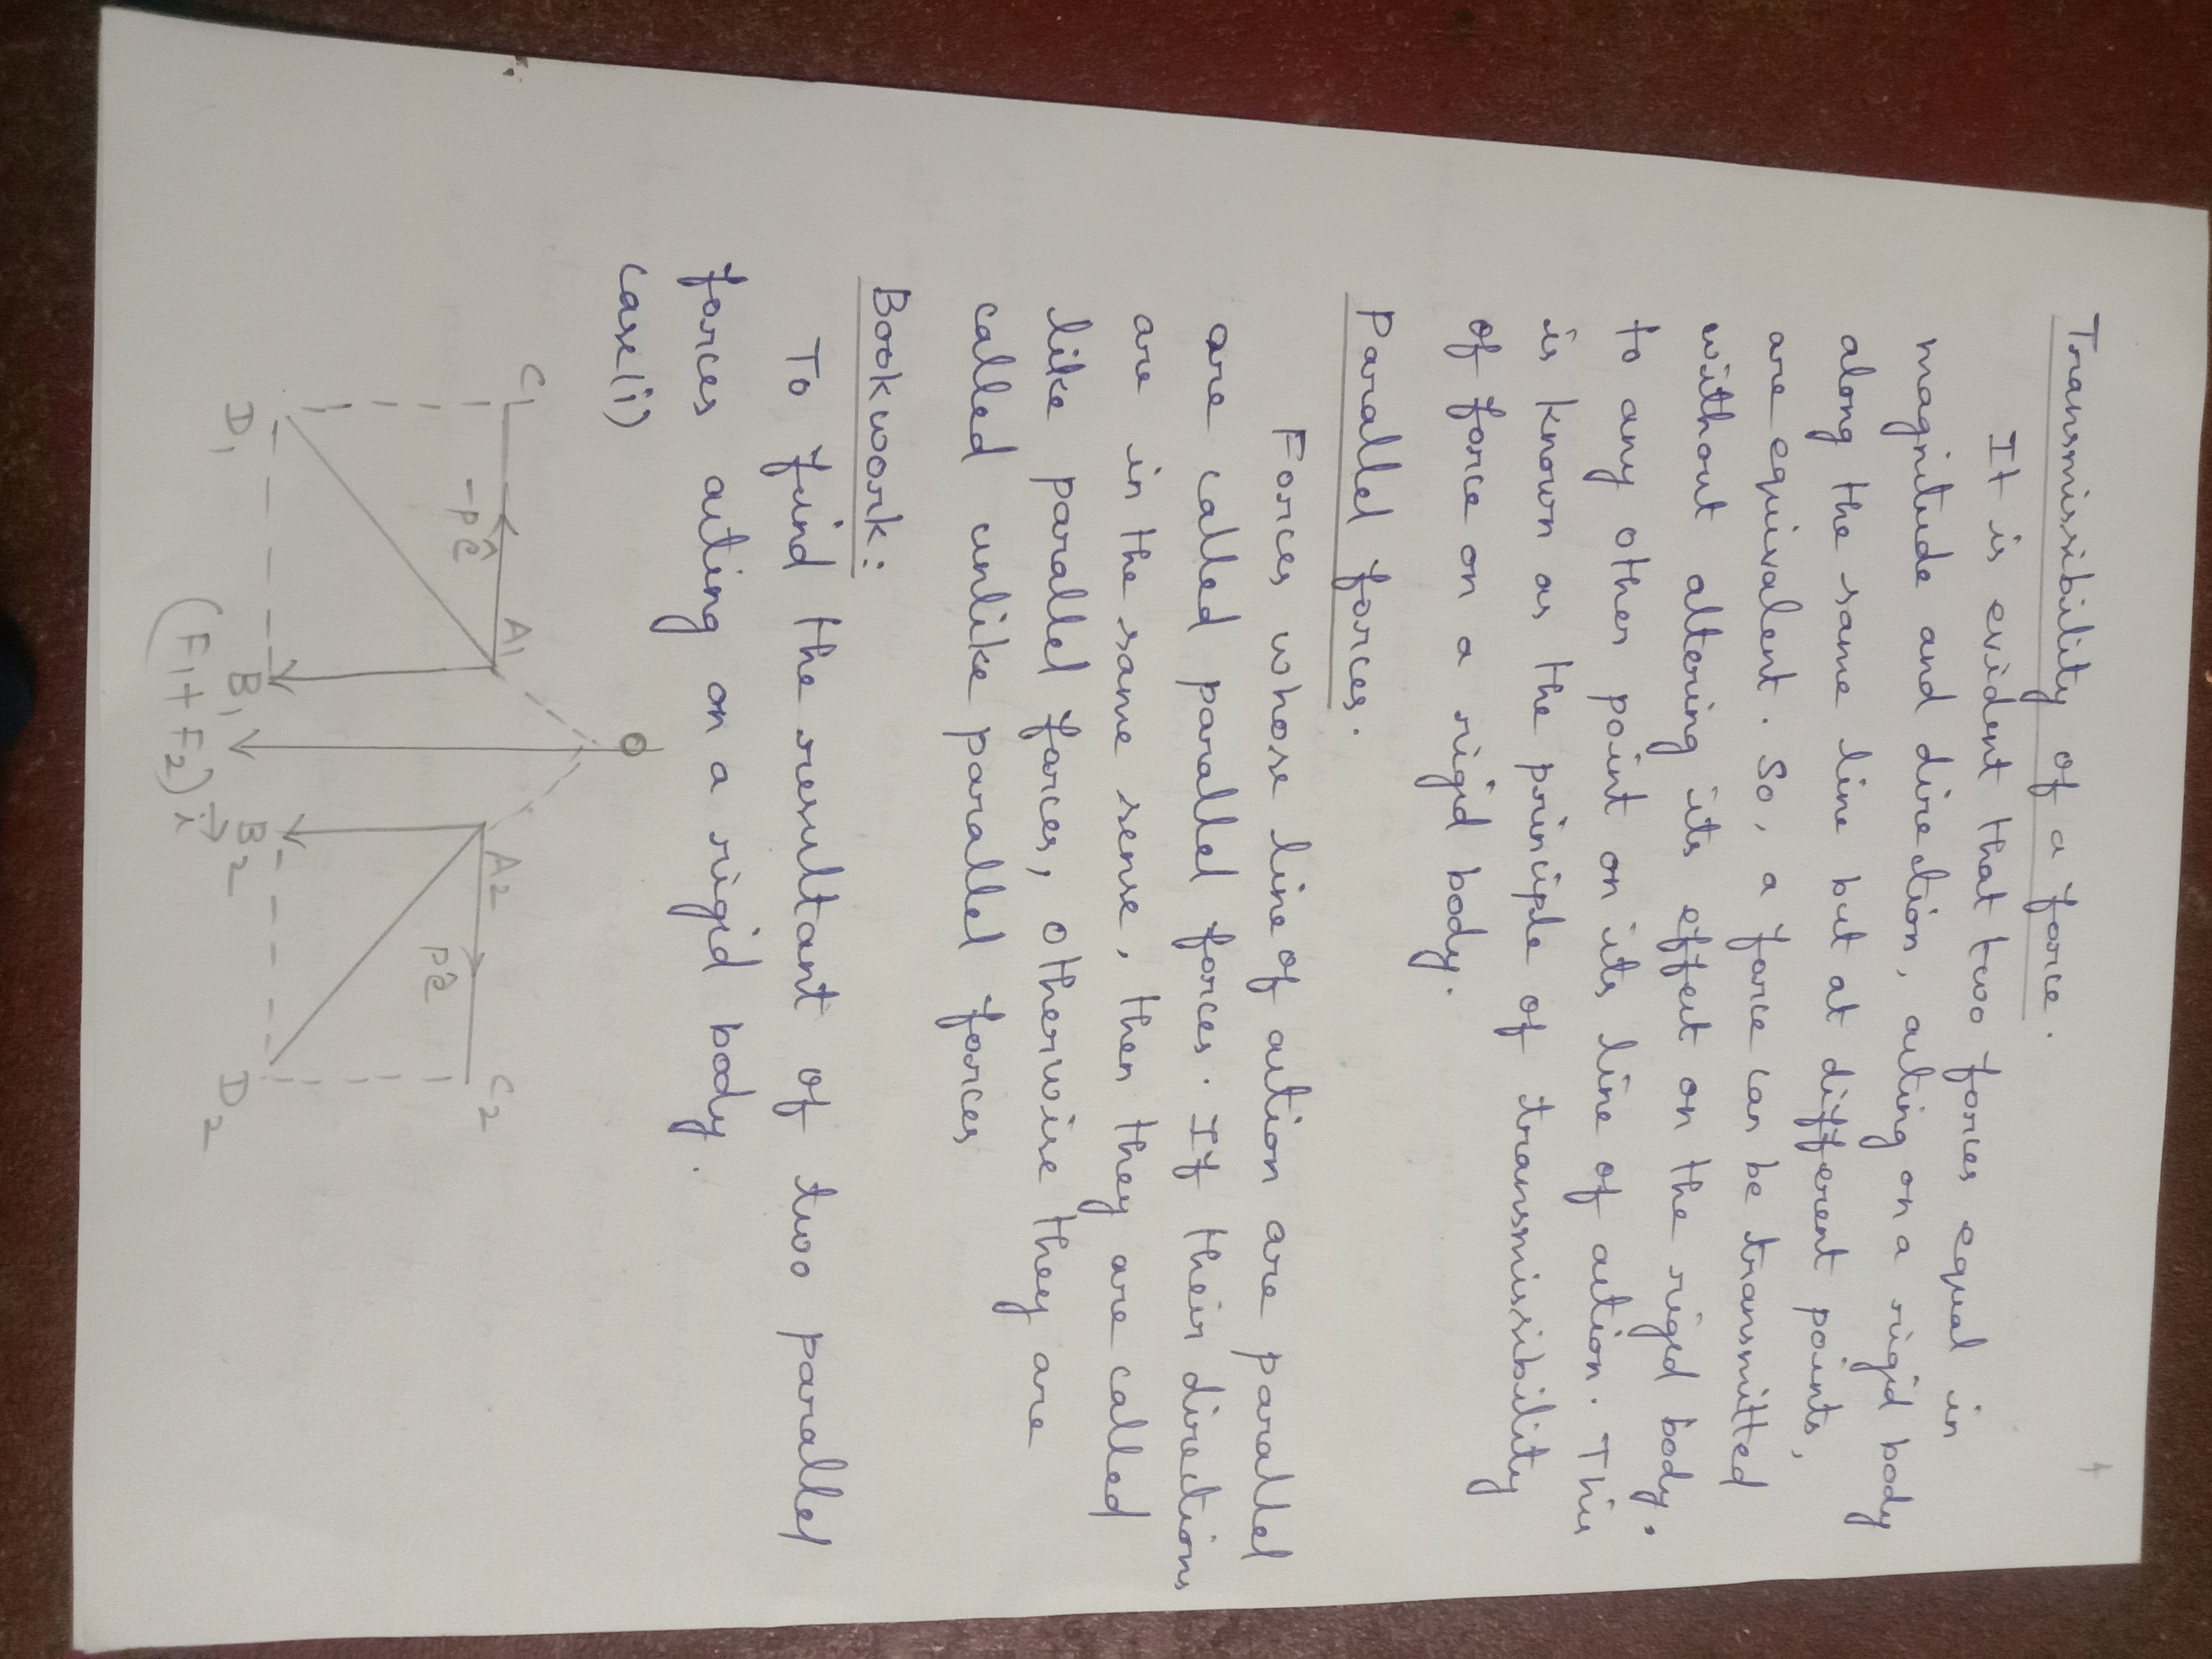 Transmissibility of a force.
It is evident that two forces equal in
magnitude and direction, acting on a rigid body
along the same line but at different points,
are equivalent. So, a force can be transmitted
without altering its effect on the riged body.
to any other point on its line of action. This
is known as the principle of transmissibility
of force on a rigid body.
Parallel forces.
Forces whose line of action are parallel
are called parallel forces. If their directions
are in the same sense, then they are called
like parallel forces, otherwise they are
called unlike parallel forces
Bookwork:
To find the resultant of two parallel
forces acting on a rigid body.
case(i)
O
C₁ A₁ A₂ C₂
-pê pê
D₁ B₁ B₂ D₂
(F₁+F₂) i⃗